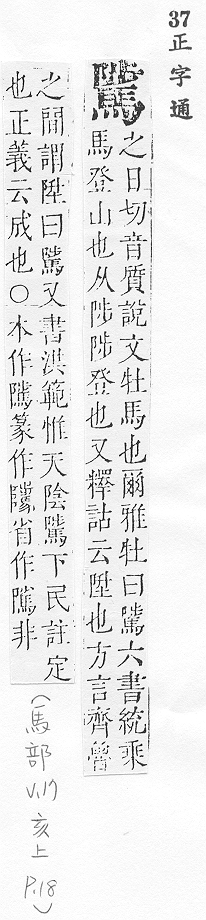 37 正字通
騭
之日切音質說文牡馬也爾雅牡曰騭六書統乘
馬登山也从陟陟登也又釋詁云陞也方言齊魯
之間謂陞曰騭又書洪範惟天陰騭下民註定
也正義云成也○本作隲篆作省作隲非
(馬部 V.17 亥上 P.18)